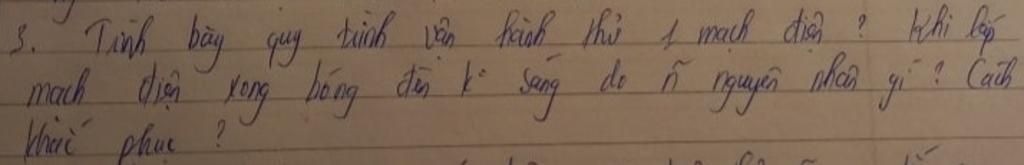 3. Trình bày quy trình vận hành thử 1 mạch điện ? Khi lắp
mạch điện xong bóng đèn k° sáng do ~n nguyên nhân gì ? Cách
khắc phục ?